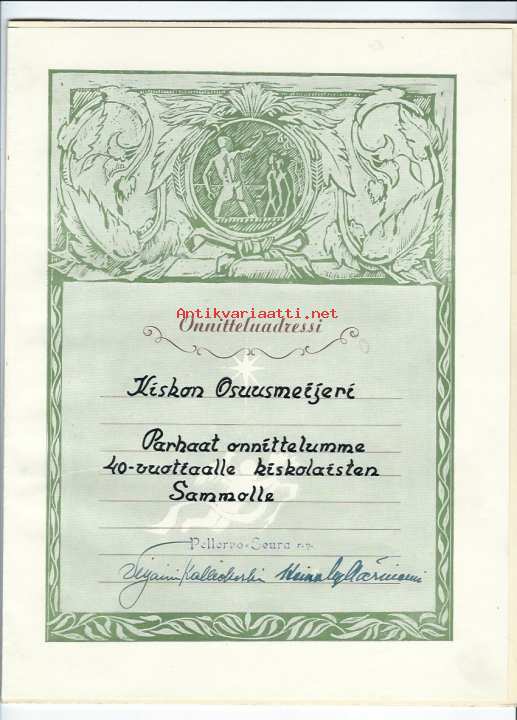 Antikvariaatti.net
Onnitteluadressi
Kiskon Osuusmeijeri
Parhaat onnittelumme
40-vuotiaalle kiskolaisten
Sammolle
Pellervo-Seura r.y.